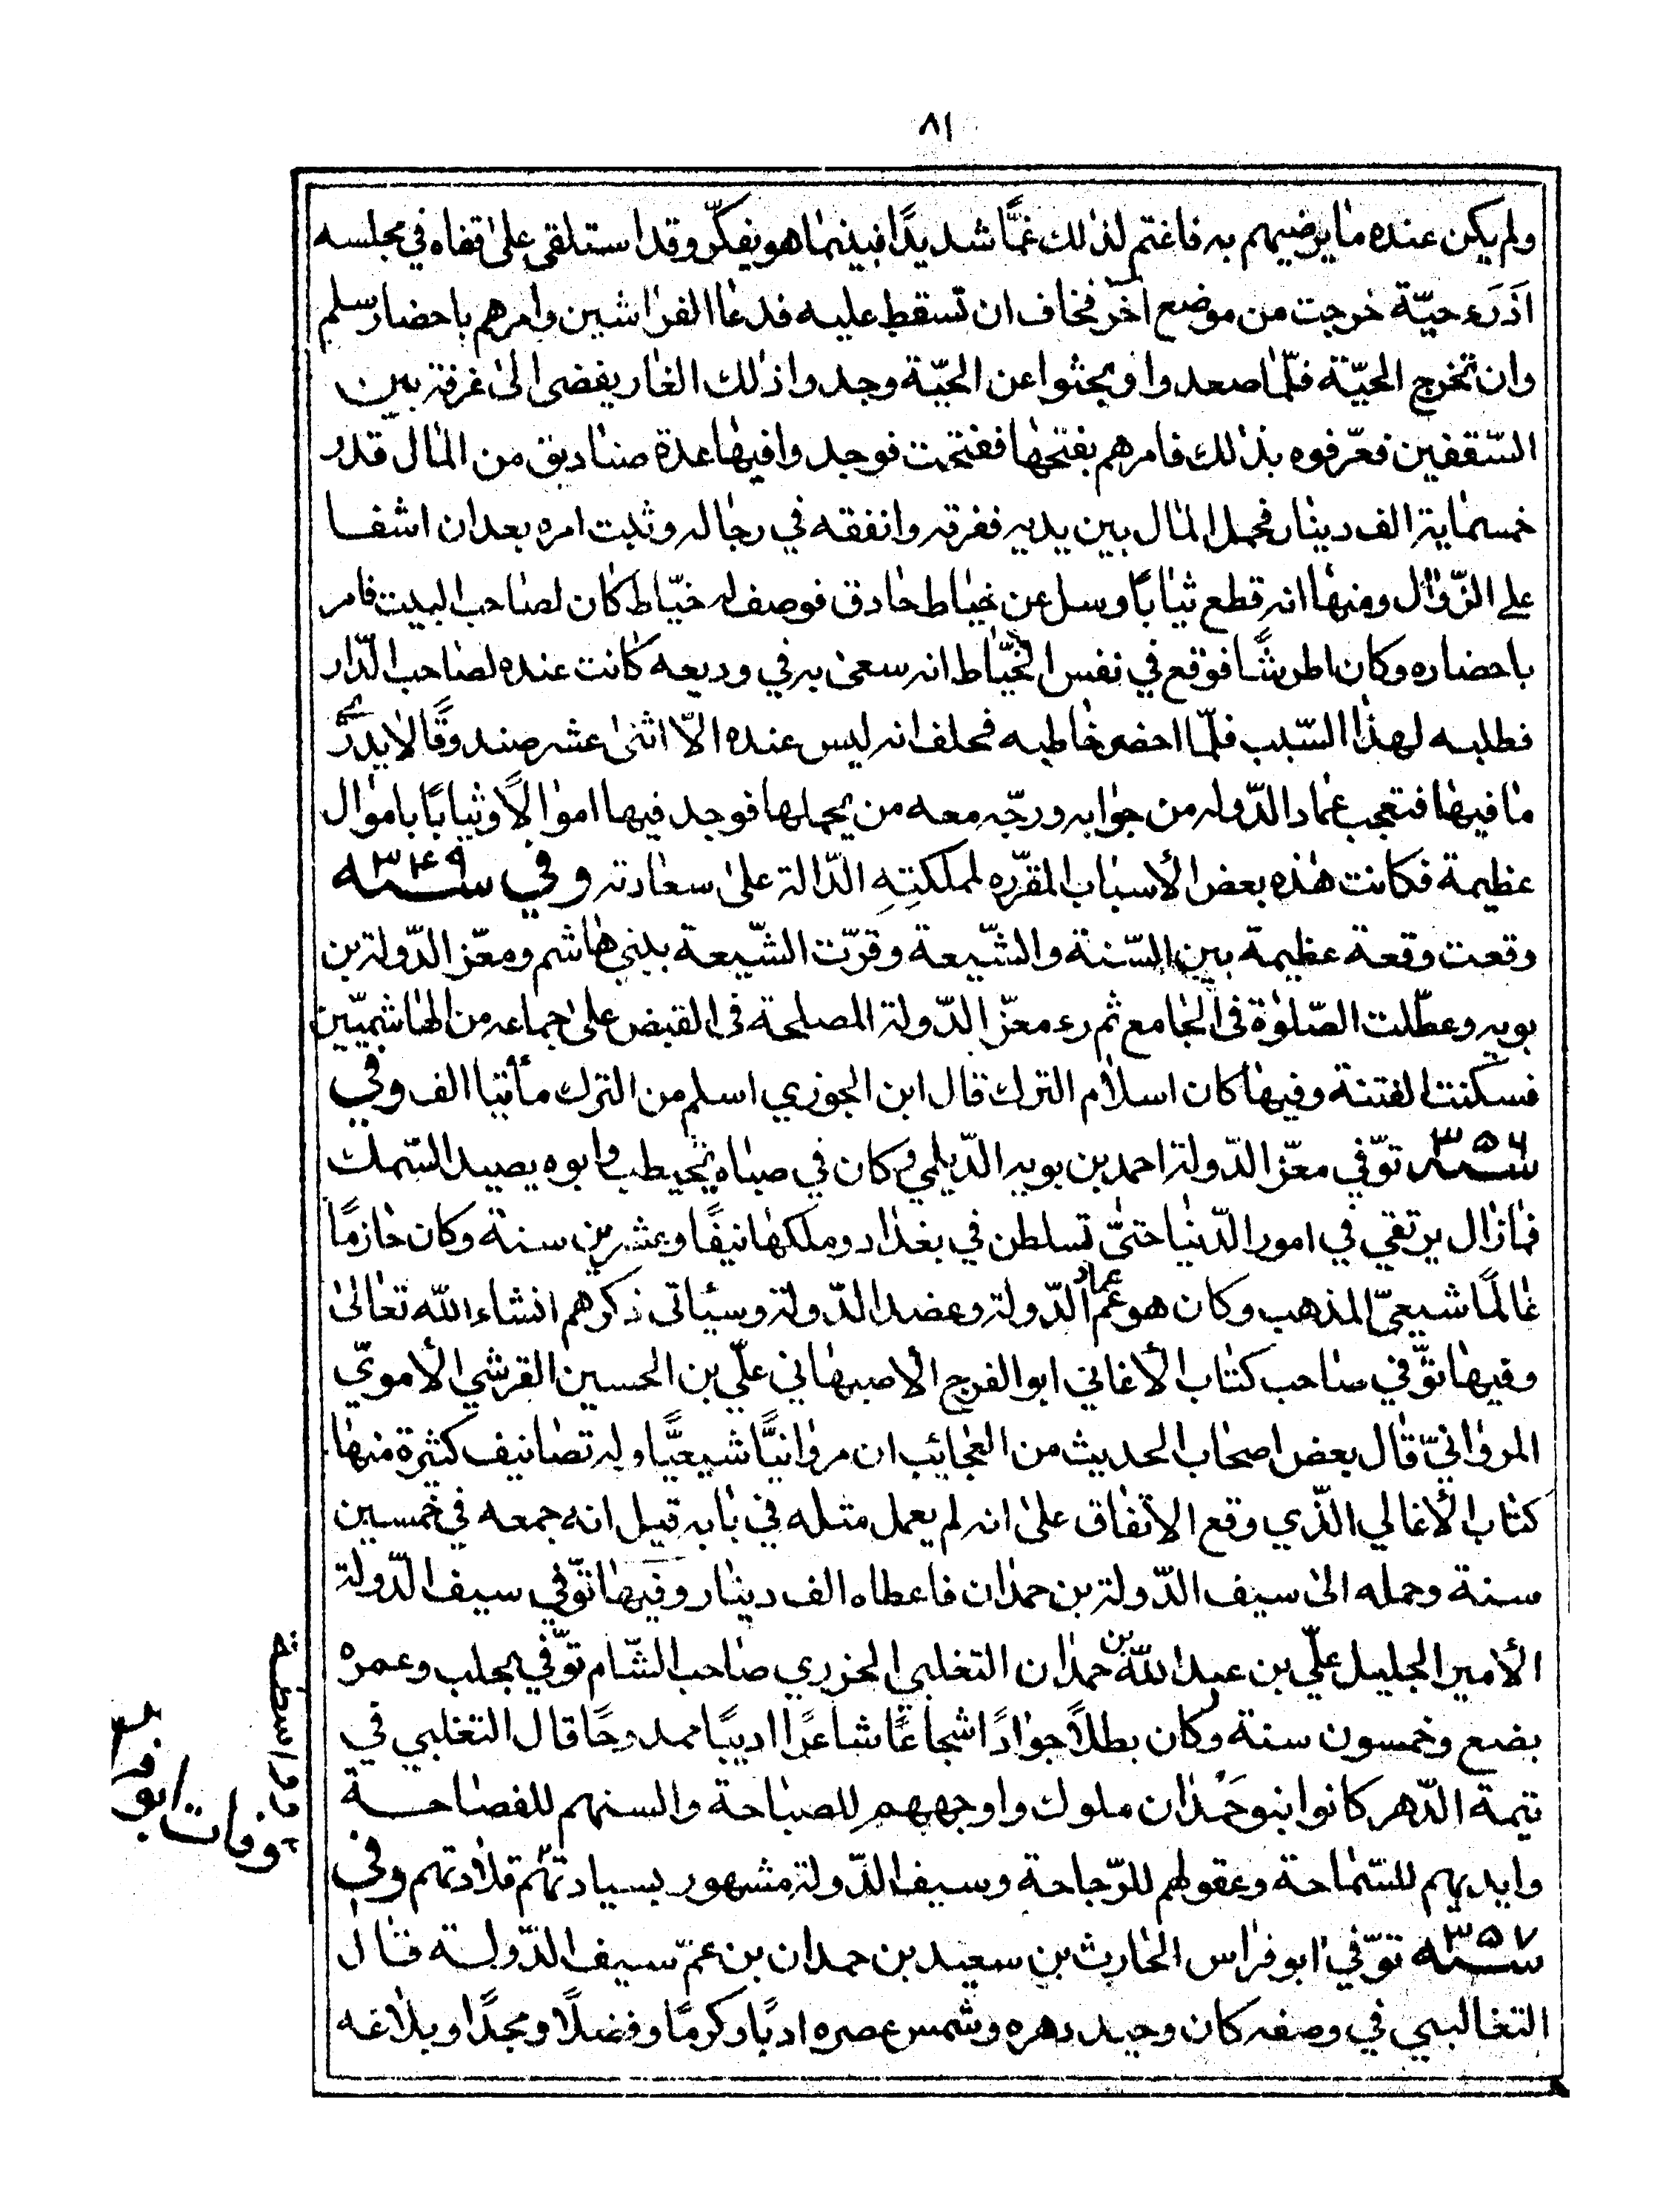 ٨١
ولم يكن عنده ما يرضيهم به فاغتم لذلك غمًّا شديدًا فبينما هو يفكّر وقد استلقى على قفاه في مجلسه
اذ رء حيّة خرجت من موضع آخر فخاف ان تسقط عليه فدعا الفراشين وامرهم باحضار سلم
وان تخرج الحيّة فلمّا صعدوا وبحثوا عن الحيّة وجدوا ذلك الغار يفضى الى غرفة بين
السّقفين فعرّفوه بذلك فامرهم بفتحها ففتحت فوجدوا فيها عدة صناديق من المال قدر
خمسماية الف دينار فحمل المال بين يديه ففرقه وانفقه في رجاله وثبت امره بعد ان اشفا
على الزّوال ومنها انه قطع ثيابًا وسل عن خياط حادق فوصف له خيّاط كان لصاحب البيت فامر
باحضاره وكان اطرشًا فوقع في نفس الخيّاط انه سعى به في وديعه كانت عنده لصاحب الدّار
فطلبه لهذا السّبب فلمّا احضر خاطبه فحلف انه ليس عنده الّا اثنى عشر صندوقًا لا يدرى
ما فيها فتعجب عماد الدّوله من جوابه ورجّه معه من يحملها فوجد فيها اموالًا وثيابًا باموال
عظيمة فكانت هذه بعض الأسباب المقرّره لمملكتِهِ الدّالة على سعادته وفي سنة ٣٤٩
وقعت وقعة عظيمة بين السّنة والشّيعة وقوّت الشّيعة ببني هاشم ومعزّ الدّولة بن
بويه وعطّلت الصّلوة فى الجامع ثم رء معزّ الدّولة المصلحة فى القبض على جماعه من الهاشميّين
فسكنت الفتنة وفيها كان اسلام الترك قال ابن الجوزي اسلم من الترك مأتبا الف وفي
سنة ٣٥٦ توّفي معزّ الدّولة احمد بن بويه الدّيلمي كان في صباه يحيطب وابوه يصيد السّمك
فما زال يرتقي في امور الدّنيا حتّى تسلطن في بغداد وملكها نيفًا وعشرين سنة وكان حازمًا
عالمًا شيعىّ المذهب وكان هو عمّ عماد الدّولة وعضد الدّولة وسيئاتى ذكرهم انشاء الله تعالى
وفيها توّفي صاحب كتاب الأغاني ابو الفرج الاصبهاني عليّ بن الحسين القرشي الأمويّ
المروانيّ قال بعض اصحاب الحديث من العجائب ان مروانيًّا شيعيًّا وله تصانيف كثيرة منها
كتاب الأغالي الذّي وقع الاتفاق على انه لم يعمل متله في بابه قيل انه جمعه في خمسين
سنة وحمله الى سيف الدّولة بن حمدان فاعطاه الف دينار وفيها توّفي سيف الدّولة
الأمير الجليل عليّ بن عبد اللّه بن حمدان التغلبي الجزري صاحب الشّام توّفي بحلب وعمره
بضع وخمسون سنة وكان بطلًا جوادًا شجاعًا شاعرًا اديبًا ممدوحًا قال التغلبي في
تيمة الدّهر كانوا بنو حَمدان ملوك واوجههم للصباحة والسنهم للفصاحة
وايديهم للسّماحة وعقولهم للرّجاحة وسيف الدّولة مشهور بسيادتهم قلادتهم وفي
سنة ٣٥٧ توّفي ابو فراس الحارث بن سعيد بن حمدان بن عمّ سيف الدّولة قال
التغالبي في وصفه كان وحيد دهره وشمس عصره ادبًا وكرمًا وفضلًا ومجدًا وبلاغه
وفات ابو فر